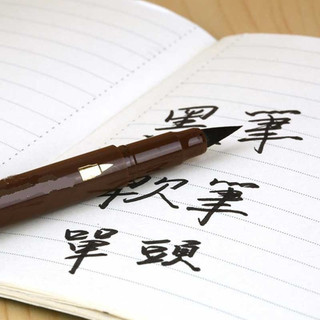 墨筆
軟筆
單頭